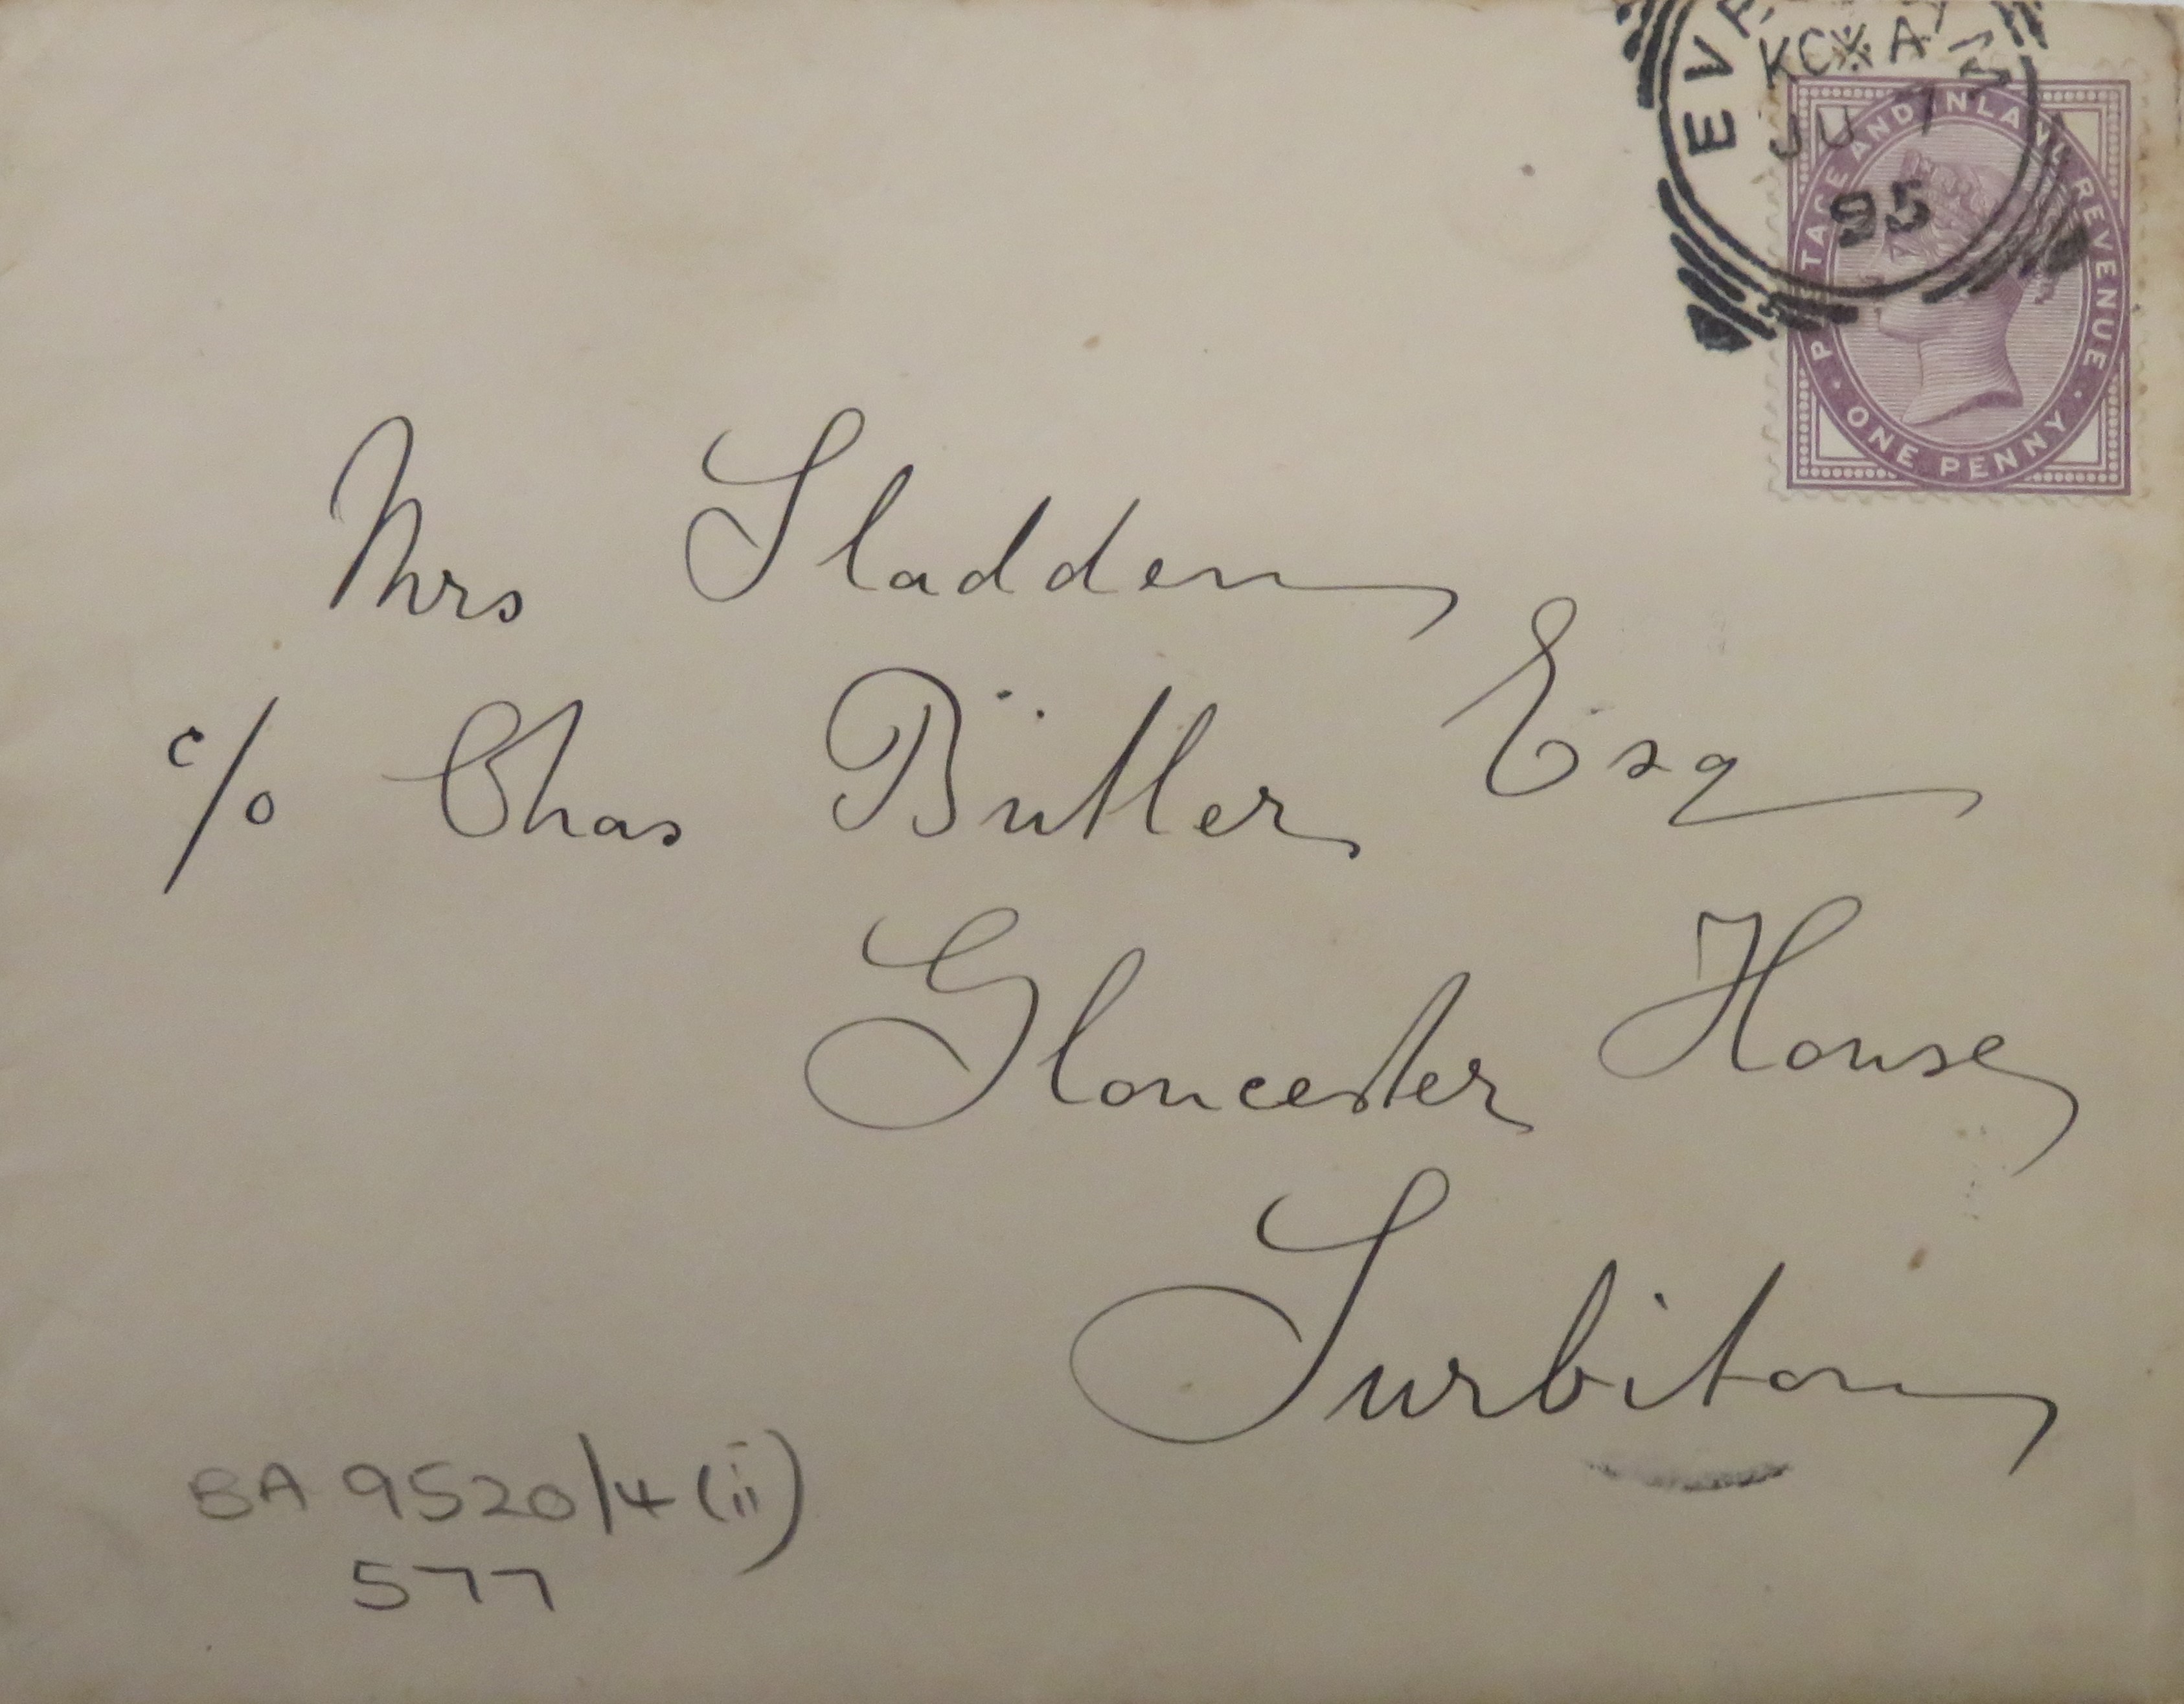 KCXA
JU 7
95
POSTAGE AND INLAND REVENUE
ONE PENNY
Mrs Sladden
c/o Chas Bütler Esq
Gloucester House
Surbiton
BA 9520/4 (ii)
577